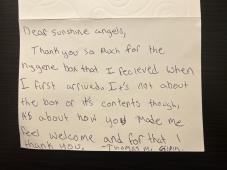 Dear sunshine angels,
Thank you so much for the
hygene box that I recieved when
I first arrived. It's not about
the box or it's contents though,
it's about how you made me
feel welcome and for that I
thank you. -Thomas M.